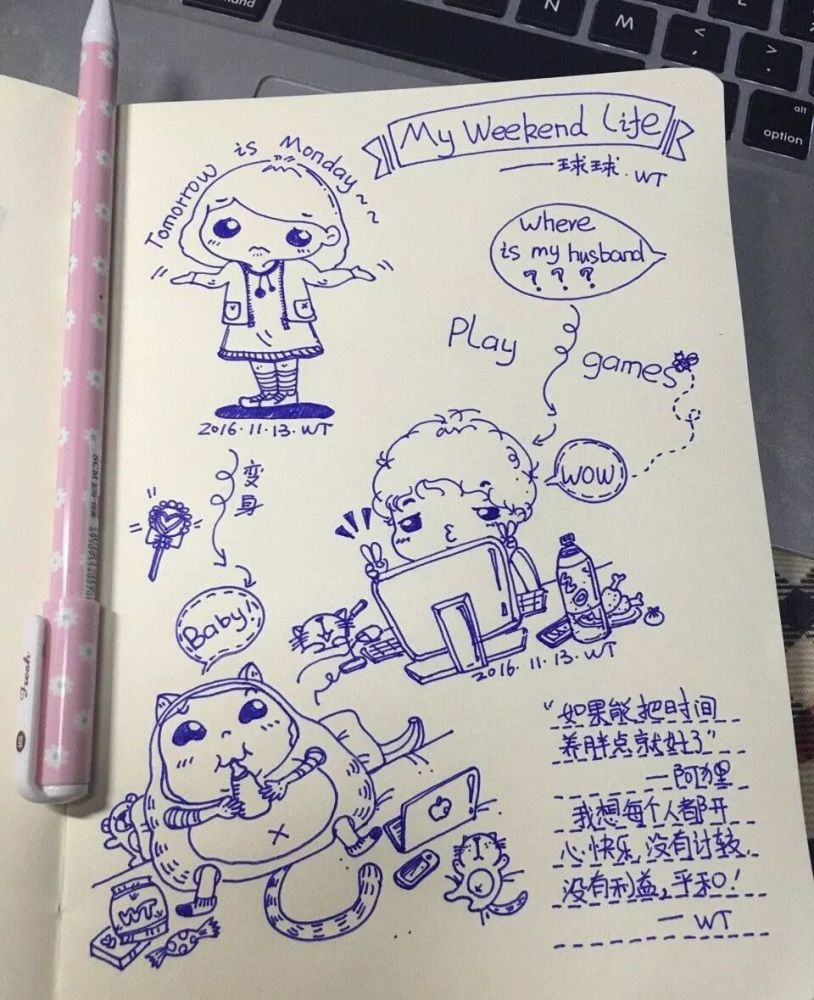 My Weekend Life
——球球.WT
Tomorrow is Monday~~
2016.11.13.WT
where
is my husband
? ? ?
Play games
WOW
2016.11.13.WT
变身
Baby!
WT
"如果能把时间
养胖点就好了"
—阿狸
我想每个人都开
心、快乐,没有计较,
没有利益,平和!
— WT
Fresh
command
N
M
<
,
>
.
?
alt
option